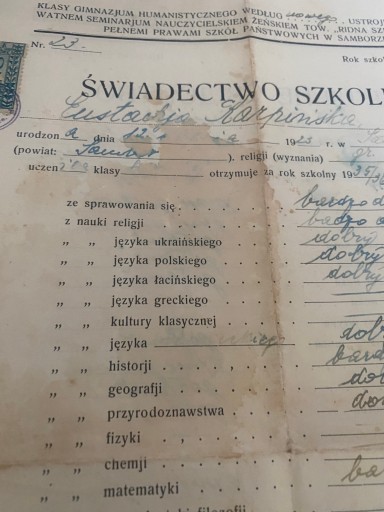 KLASY GIMNAZJUM HUMANISTYCZNEGO WEDŁUG nowego. USTROJ
WATNEM SEMINARJUM NAUCZYCIELSKIEM ŻEŃSKIEM TOW. „RIDNA SZ
PEŁNEMI PRAWAMI SZKÓŁ PAŃSTWOWYCH W SAMBORZ
Nr. 23.
Rok szko
ŚWIADECTWO SZKOLN
Eustachja Karpińska
urodzona dnia 12 1923 r. w Sa
(powiat: Sambor ). religji (wyznania)
uczen klasy otrzymuje za rok szkolny 1935/36
ze sprawowania się bardzo d
z nauki religji
„ „ języka ukraińskiego dobry
„ „ języka polskiego dobry
„ „ języka łacińskiego dobry
„ „ języka greckiego
„ „ kultury klasycznej
„ „ języka dob
„ „ historji bard
„ „ geografji dob
„ „ przyrodoznawstwa do
„ „ fizyki
„ „ chemji
„ „ matematyki ba